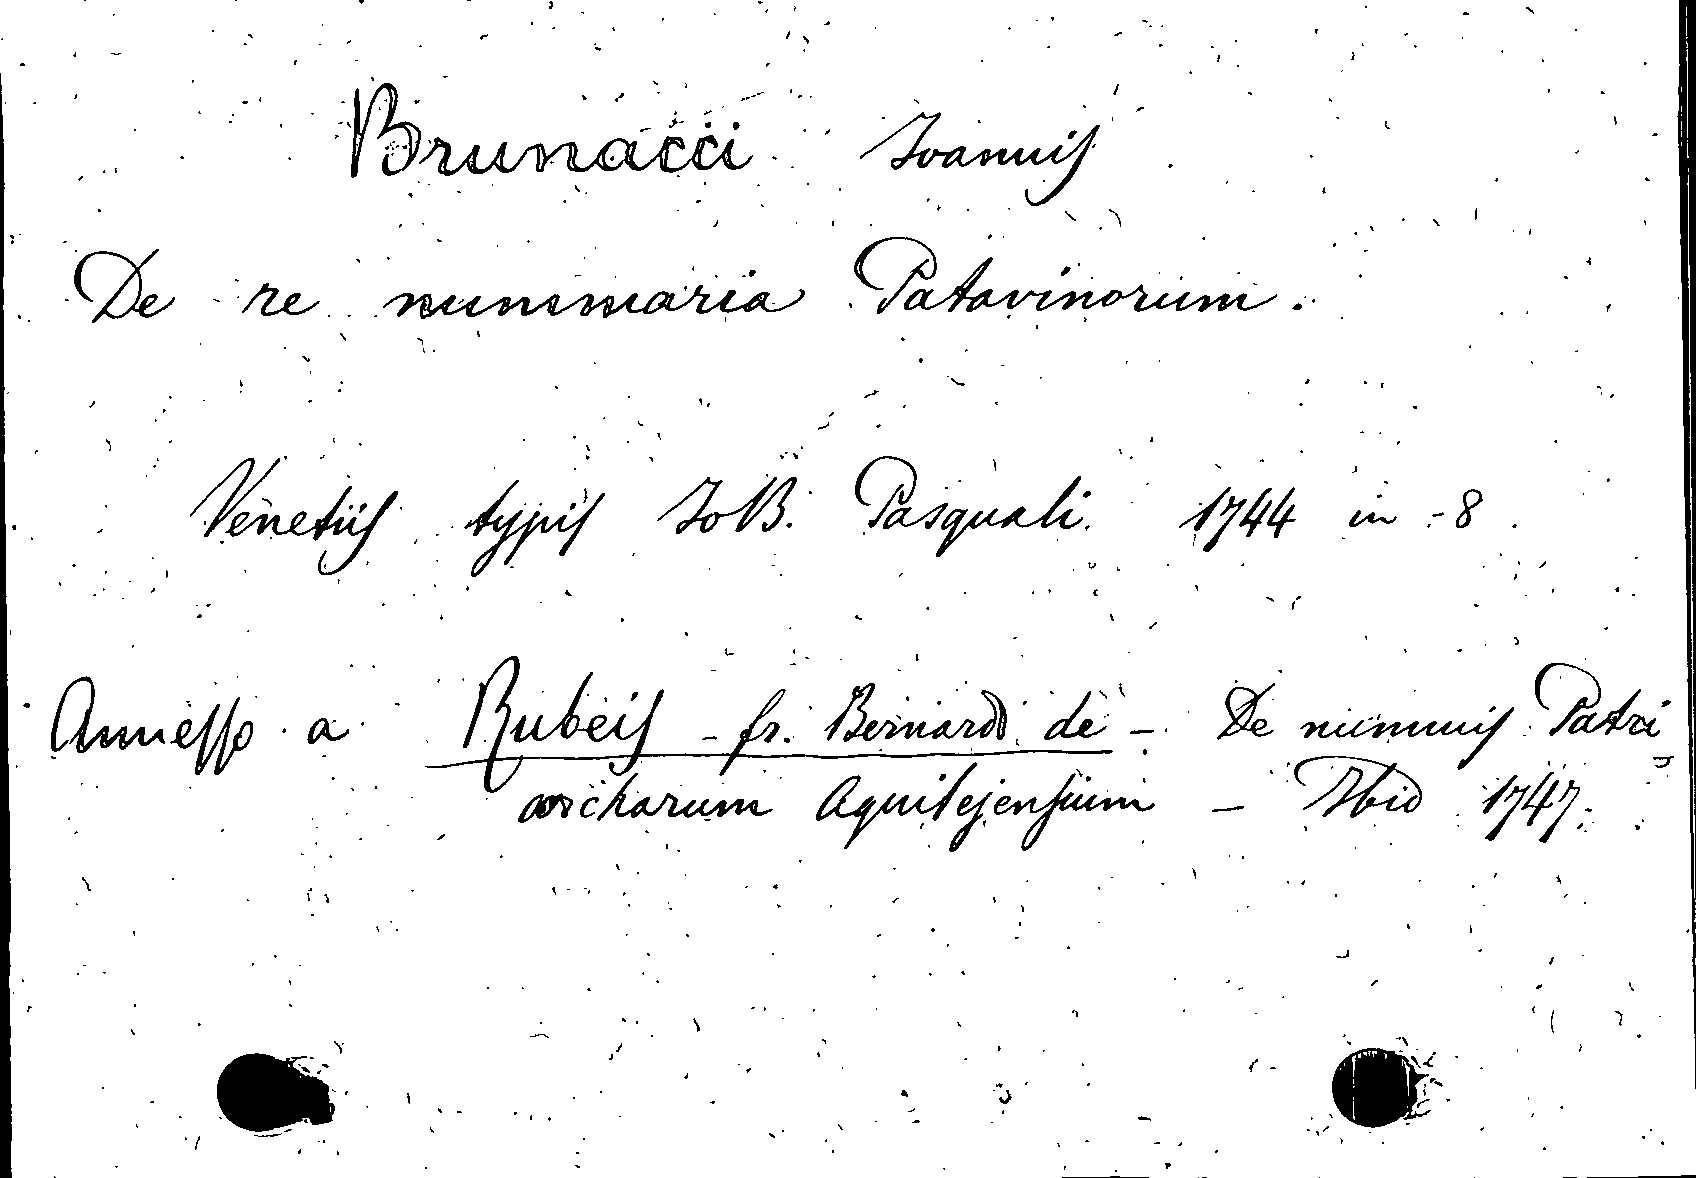 Brunacci Ioannis
De re nummaria Patavinorum.
Venetiis typis Io B. Pasquali. 1744 in-8.
Annesso a Rubeis - fr. Bernardi de - De nummis Patri
archarum Aquilejensium - Ibid 1747.